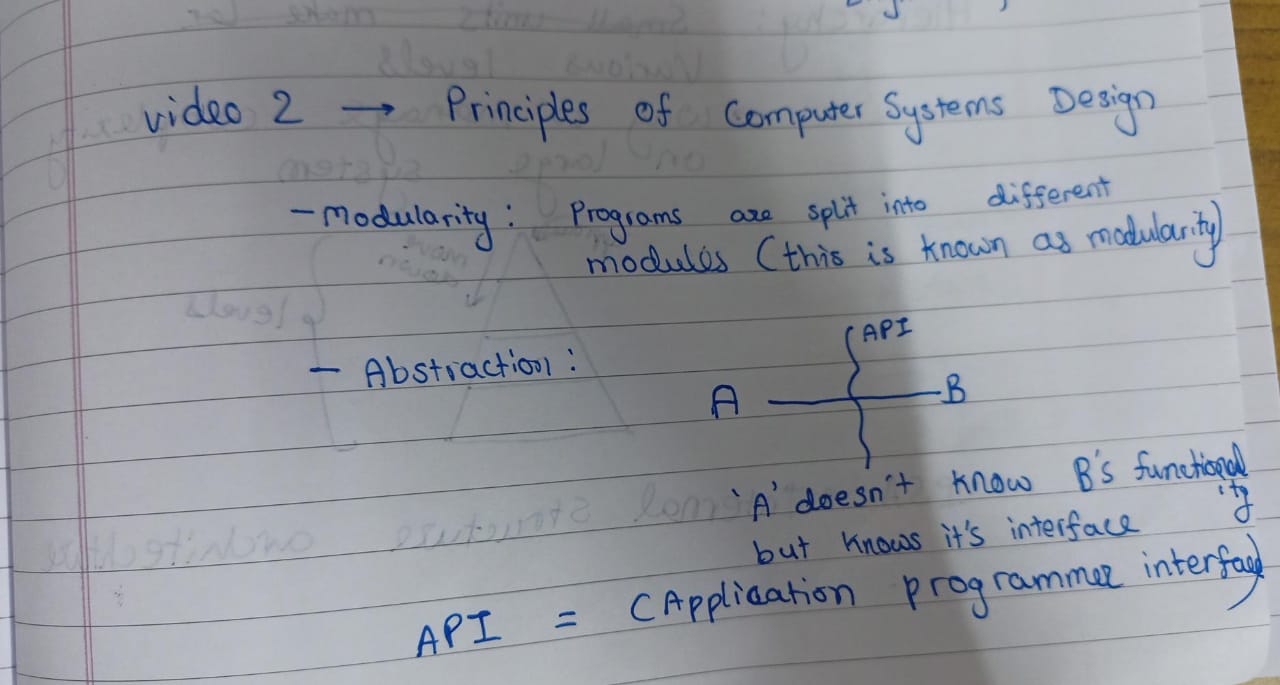 video 2 → Principles of Computer Systems Design
- Modularity: Programs are split into different
modules (this is known as modularity)
- Abstraction:
API
A B
'A' doesn't know B's functionality
but knows it's interface
API = (Application programmer interface)